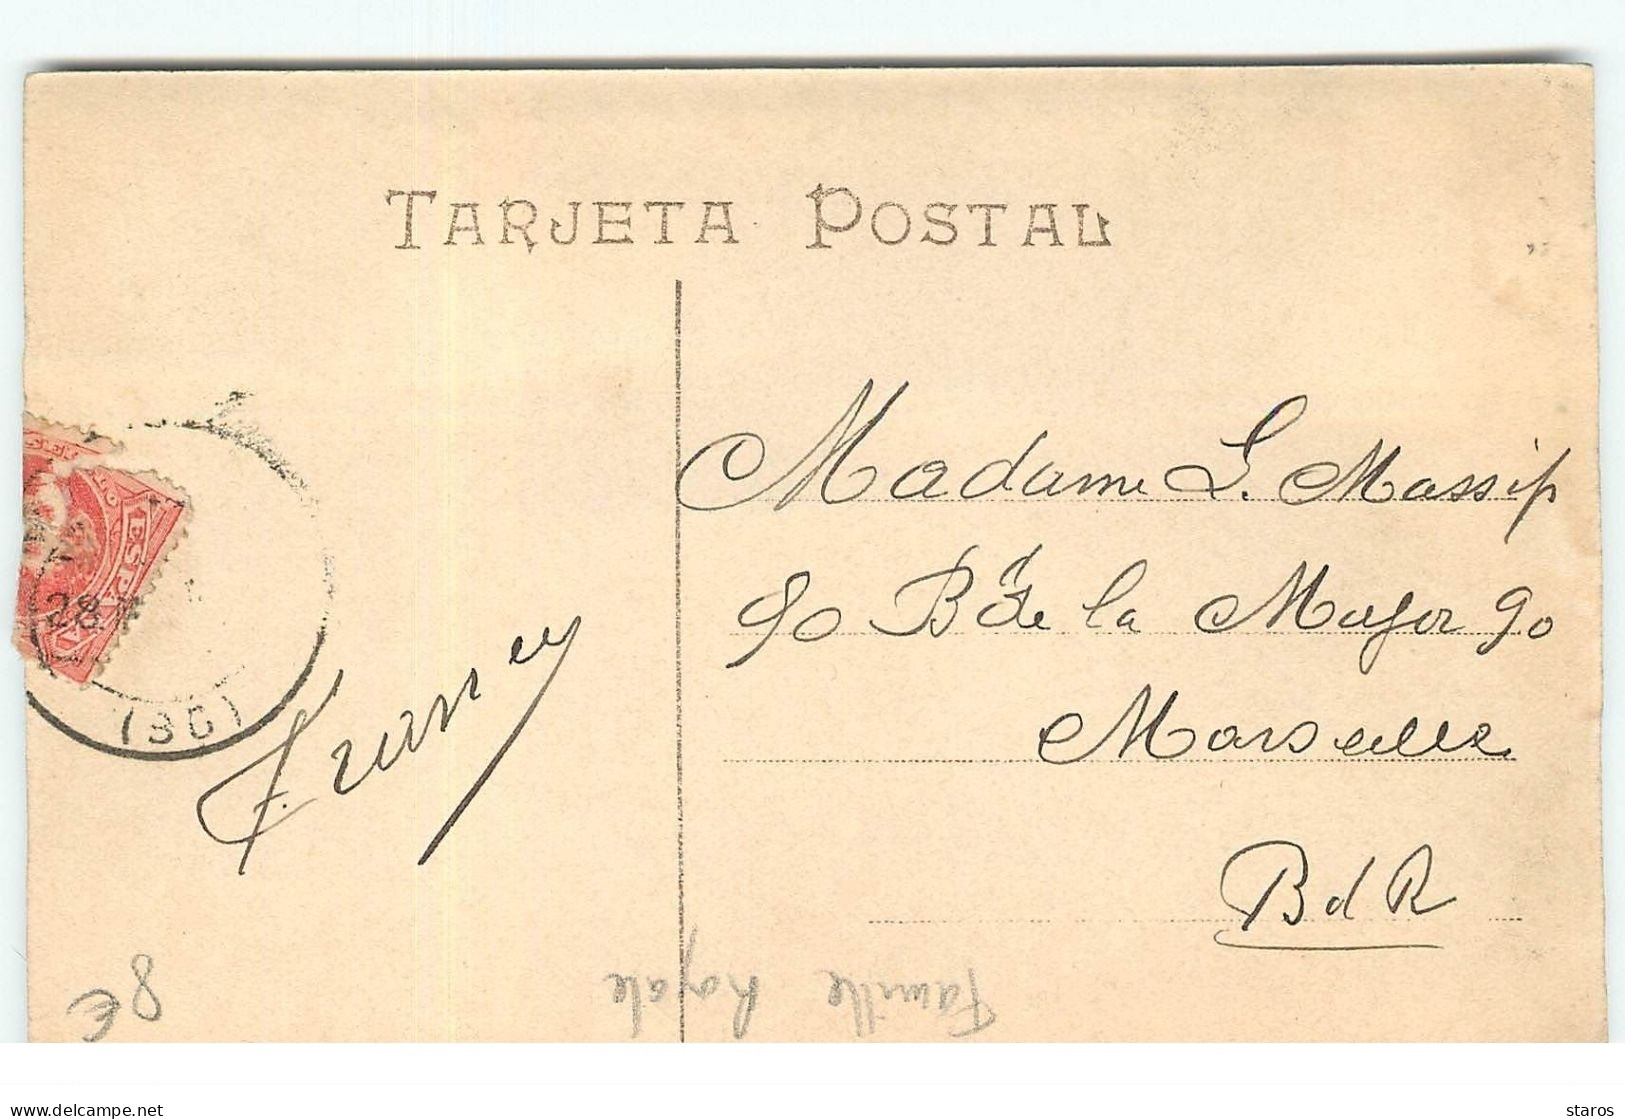 TARJETA POSTAL
Madame L. Massip
90 Bd de la Major 90
Marseille
BdR
ESP
28
(3G)
Franey
Famille Royale
8€
delcampe.net
staros